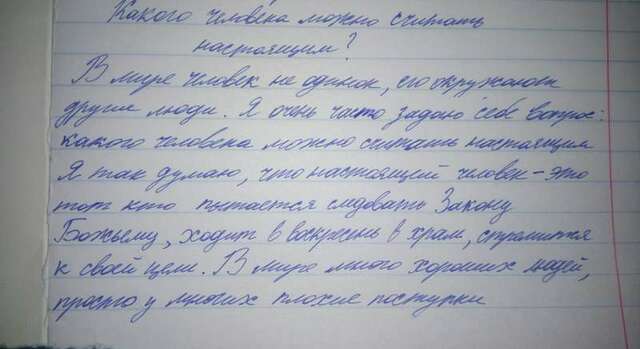 Какого человека можно считать
настоящим?
В мире человек не одинок, его окружают
другие люди. Я очень часто задаю себе вопрос:
какого человека можно считать настоящим
Я так думаю, что настоящий человек – это
тот кто пытается следовать Закону
Божьему, ходит в воскресень в храм, стремится
к своей цели. В мире много хороших людей,
просто у многих плохие поступки